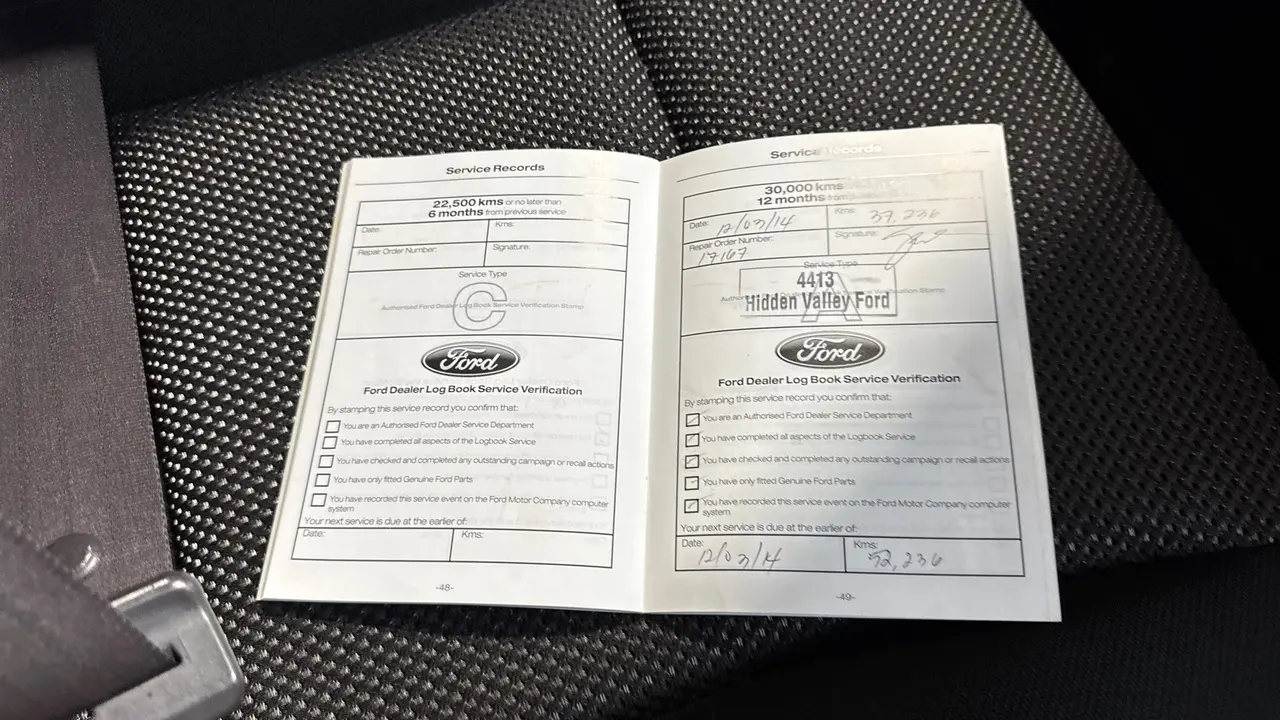 Service Records
22,500 kms or no later than
6 months from previous service
Date:
Kms:
Repair Order Number:
Signature:
Service Type
C
Authorised Ford Dealer Log Book Service Verification Stamp
Ford
Ford Dealer Log Book Service Verification
By stamping this service record you confirm that:
You are an Authorised Ford Dealer Service Department
You have completed all aspects of the Logbook Service
You have checked and completed any outstanding campaign or recall actions
You have only fitted Genuine Ford Parts
You have recorded this service event on the Ford Motor Company computer
system
Your next service is due at the earlier of:
Date:
Kms:
-48-
Service Records
30,000 kms
12 months from
Date: 12/03/14
Kms: 37,236
Repair Order Number:
17167
Signature:
Service Type
A
4413
Hidden Valley Ford
Verification Stamp
Ford
Ford Dealer Log Book Service Verification
By stamping this service record you confirm that:
You are an Authorised Ford Dealer Service Department
You have completed all aspects of the Logbook Service
You have checked and completed any outstanding campaign or recall actions
You have only fitted Genuine Ford Parts
You have recorded this service event on the Ford Motor Company computer
system
Your next service is due at the earlier of:
Date: 12/03/14
Kms: 52,236
-49-